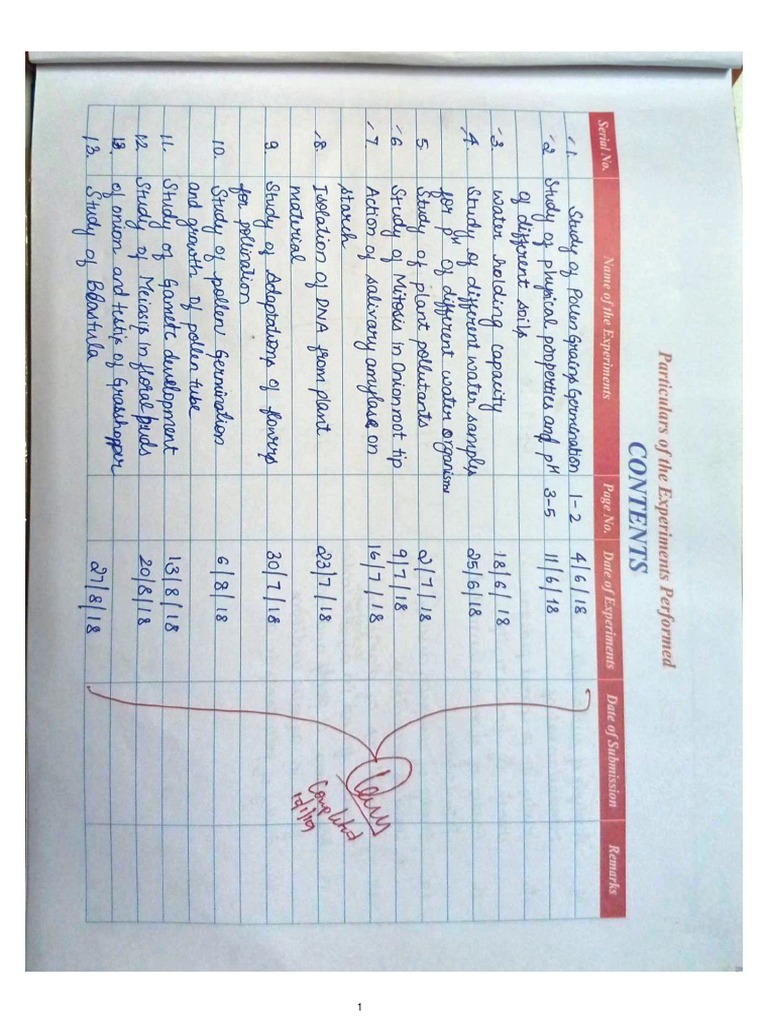 Particulars of the Experiments Performed
CONTENTS
Serial No. Name of the Experiments Page No. Date of Experiments Date of Submission Remarks
1. Study of Polen Grains Germination 1-2 4/6/18
2 Study of physical properties and pH 3-5 11/6/18
of different soils
3 water holding capacity 18/6/18
4. Study of different water samples 25/6/18
for pH of different water organisms
5. Study of plant pollutants 2/7/18
6 Study of Mitosis in Onion root tip 9/7/18
7. Action of salivary amylase on 16/7/18
starch
8. Isolation of DNA from plant 23/7/18
material
9 Study of Adaptations of flowers 30/7/18
for pollination
10. Study of pollen Germination 6/8/18
and growth of pollen tube
11. Study of Gametic development 13/8/18
12. Study of Meiosis in floral buds 20/8/18
13. of onion and testis of Grasshopper
13. Study of Blastula 27/8/18
Completed
1